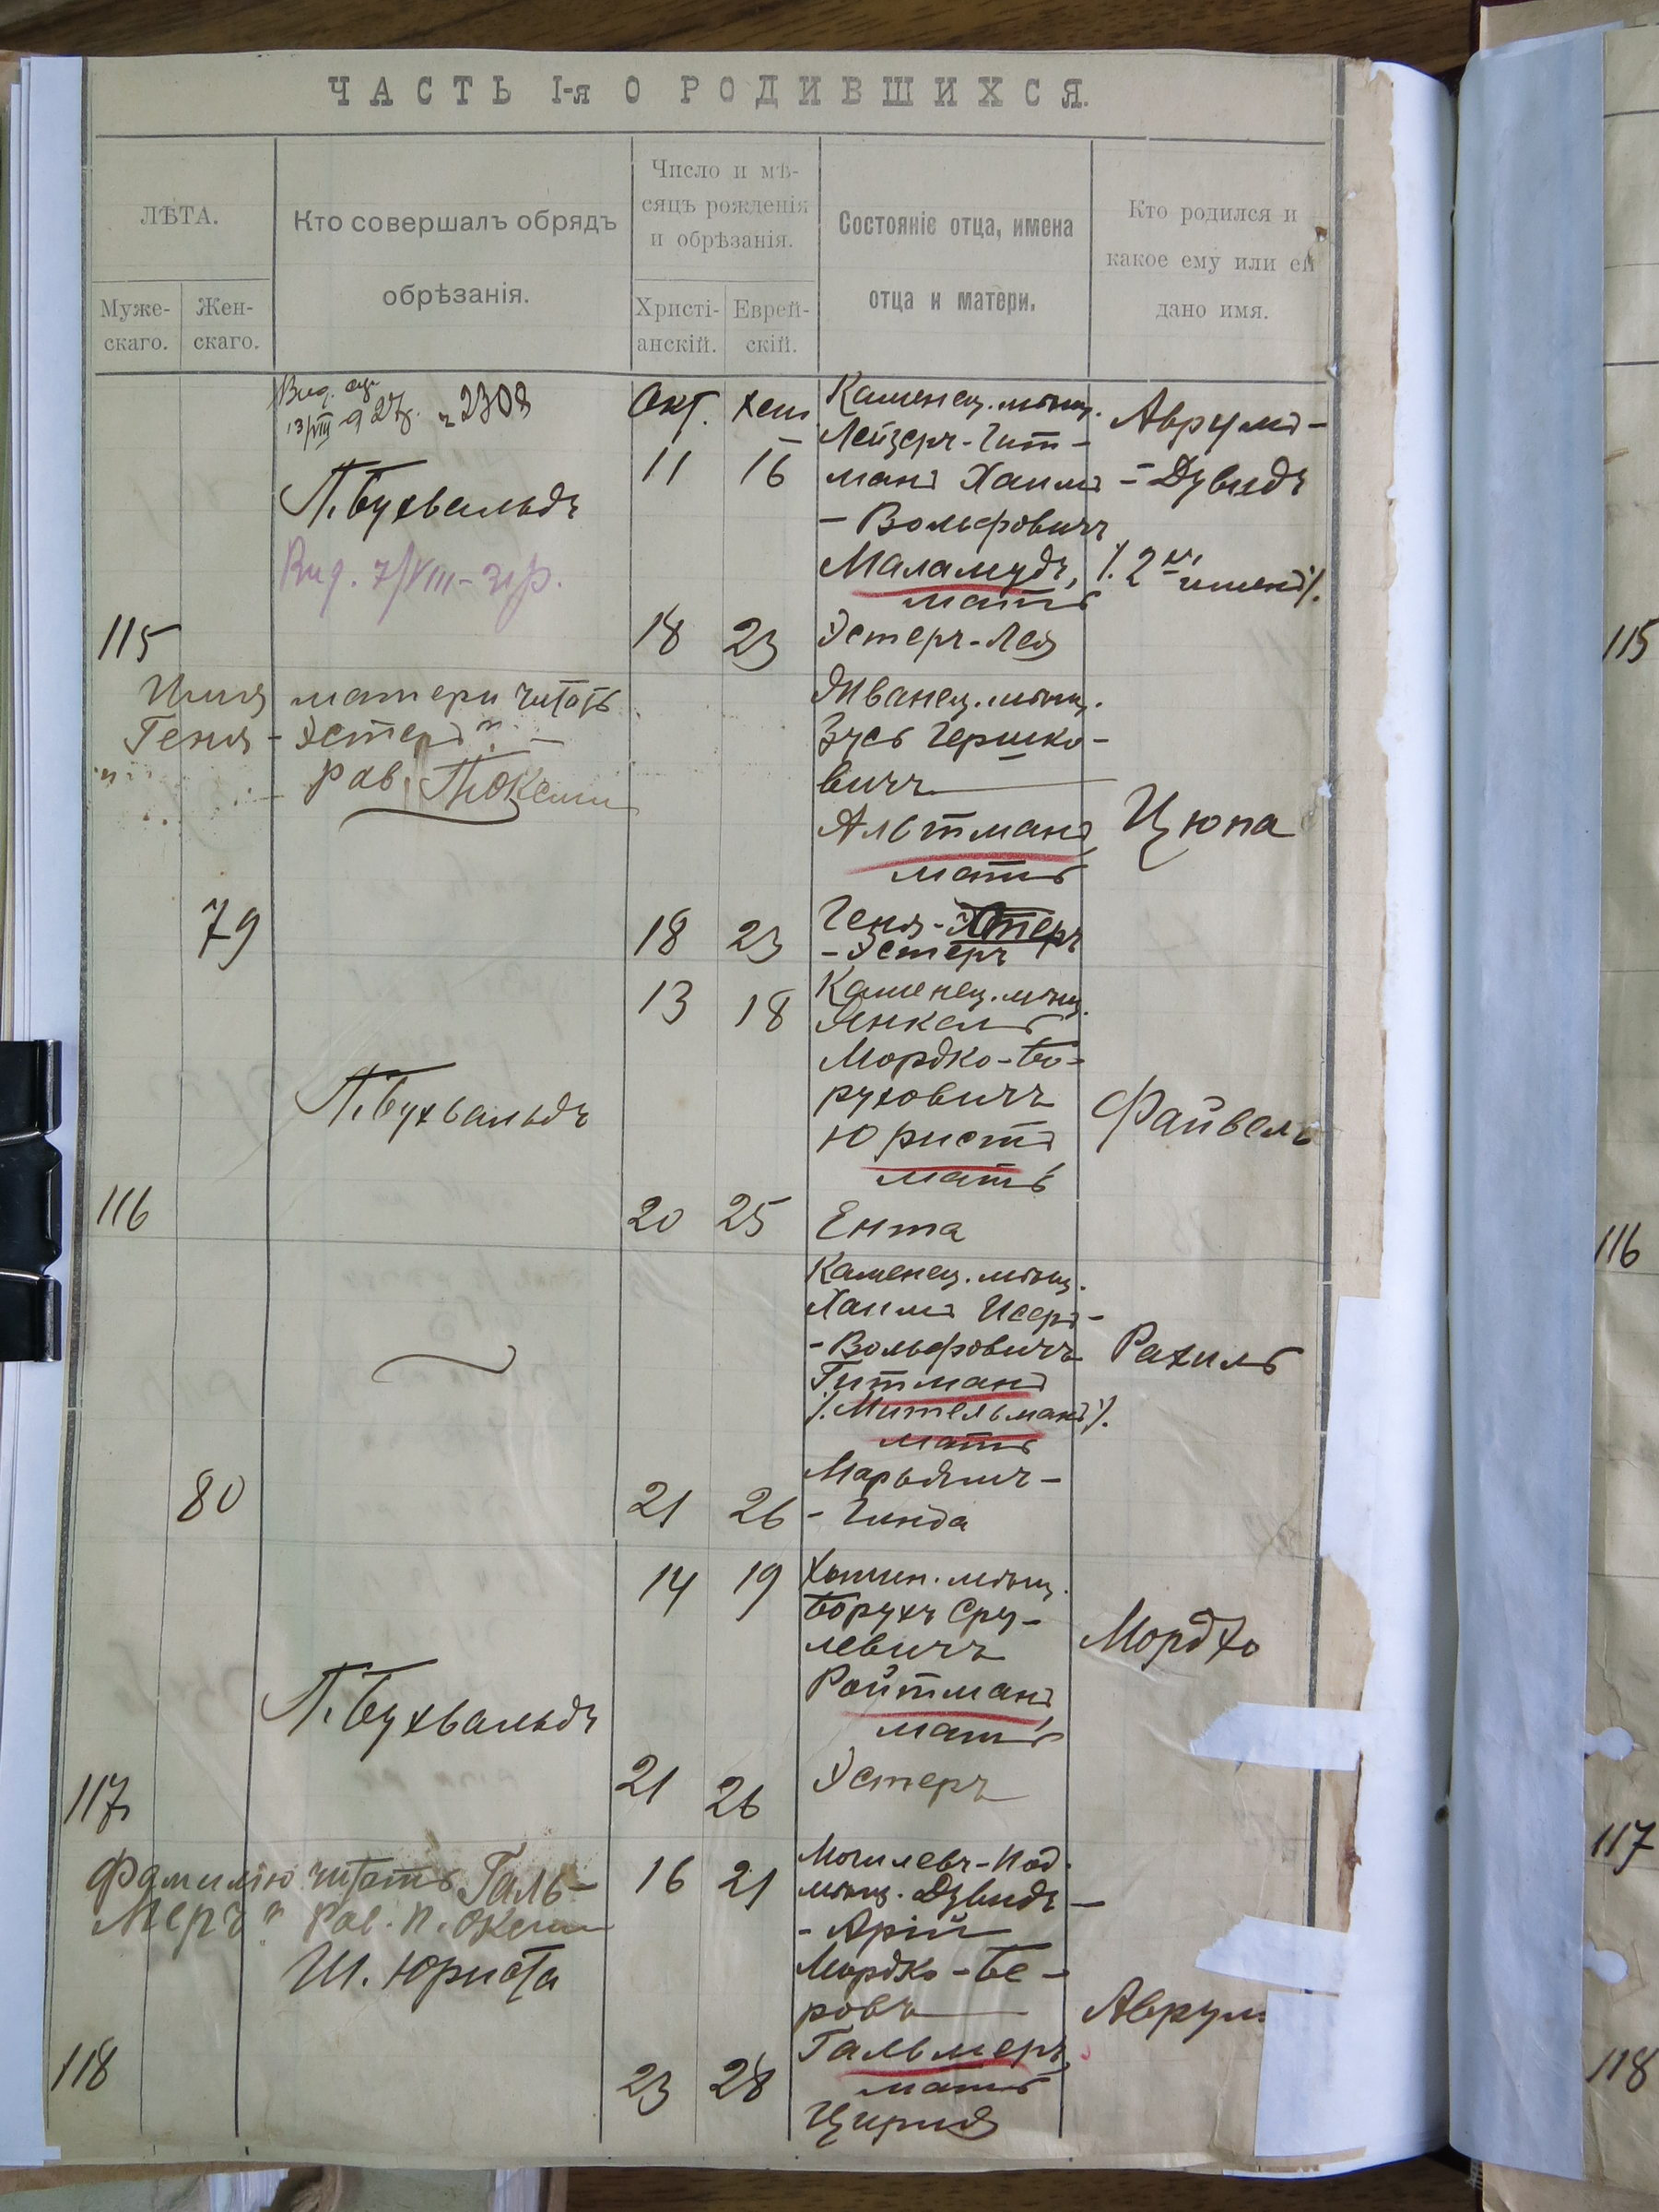 ЧАСТЬ I-я О РОДИВШИХСЯ.
ЛѢТА.
Муже-
скаго.
Жен-
скаго.
Кто совершалъ обрядъ
обрѣзанія.
Число и мѣ-
сяцъ рожденія
и обрѣзанія.
Христі-
анскій.
Еврей-
скій.
Состояніе отца, имена
отца и матери.
Кто родился и
какое ему или ей
дано имя.
13/VIII 927г. 2308
П. Бухвальдъ
Вид. 7/VIII - 31р.
115
Окт. Хеш
11 16
18 23
Каменец. мѣщ.
Лейзеръ-Гит-
манъ Хаимъ
- Вольфовичъ
Маламудъ,
мать
Эстеръ-Лея
Аврумъ-
- Дувидъ
/. 2 имени /.
Имя матери читать
Геня - Эстеръ".
рав.
79
18 23
Жванец. мѣщ.
Зусь Гершко-
вичъ
Альтманъ,
мать
Геня-
- Эстеръ
Цюпа
116
П. Бухвальдъ
13 18
20 25
Каменец. мѣщ.
Янкель
Мордко-Бо-
руховичъ
Юристъ
мать
Ента
Файвель
80
21 26
Каменец. мѣщ.
Хаимъ Исеръ-
- Вольфовичъ
Гитманъ
/. Мительманъ /.
мать
Марьямъ-
- Гинда
Рахиль
117
П. Бухвальдъ
14 19
21 26
мѣщ.
Борухъ Сру-
левичъ
Ройтманъ,
мать
Эстеръ
Мордко
Фамилію читать Галь-
меръ". Рав.
Ш. Юриста
118
16 21
23 28
Могилевъ-Под.
мѣщ. Дувидъ-
- Арій
Мордко-Бе-
ровъ
Гальмеръ,
мать
Цирля
Аврумъ
115
116
117
118